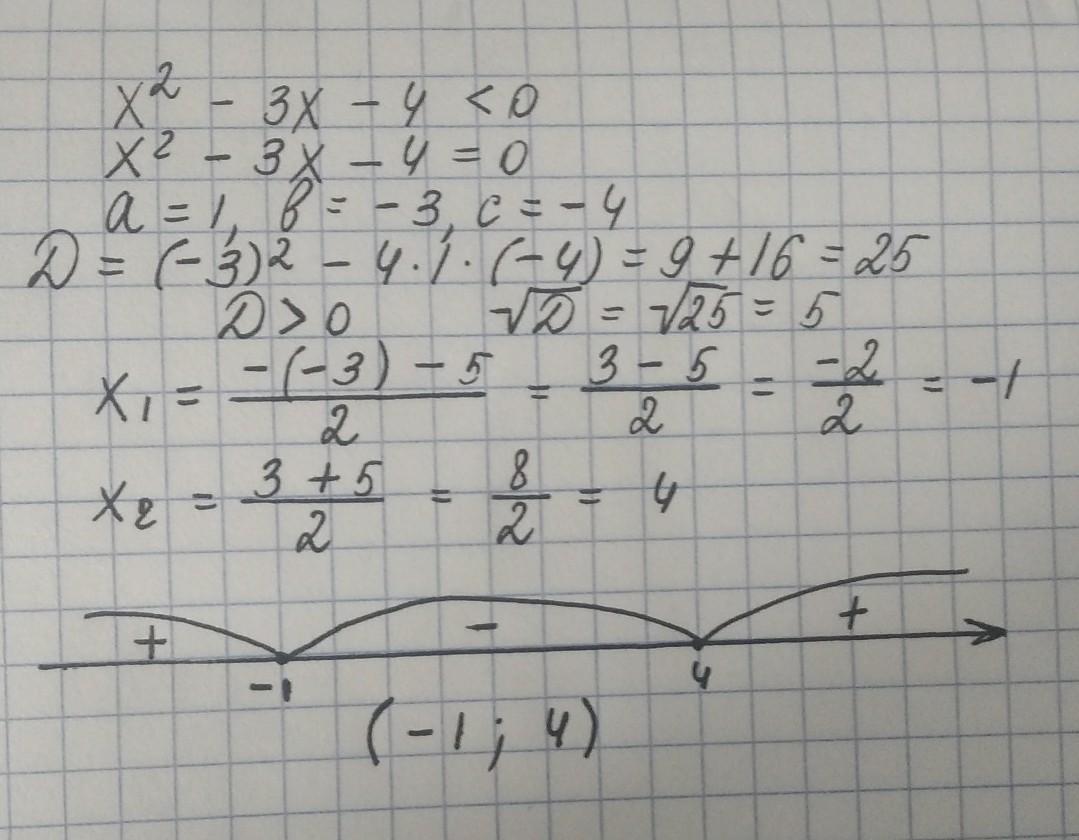 x² - 3x - 4 < 0
x² - 3x - 4 = 0
a = 1, b = -3, c = -4
D = (-3)² - 4·1·(-4) = 9 + 16 = 25
D > 0 √D = √25 = 5
x₁ = (-(-3) - 5)/2 = (3 - 5)/2 = (-2)/2 = -1
x₂ = (3 + 5)/2 = 8/2 = 4
+ - +
-1 4
(-1; 4)